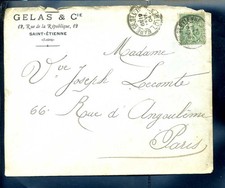 GELAS & Cie
12, Rue de la République, 12
SAINT-ÉTIENNE
(Loire)
Madame
Vve Joseph Lecomte
66 Rue d'Angoulême
Paris